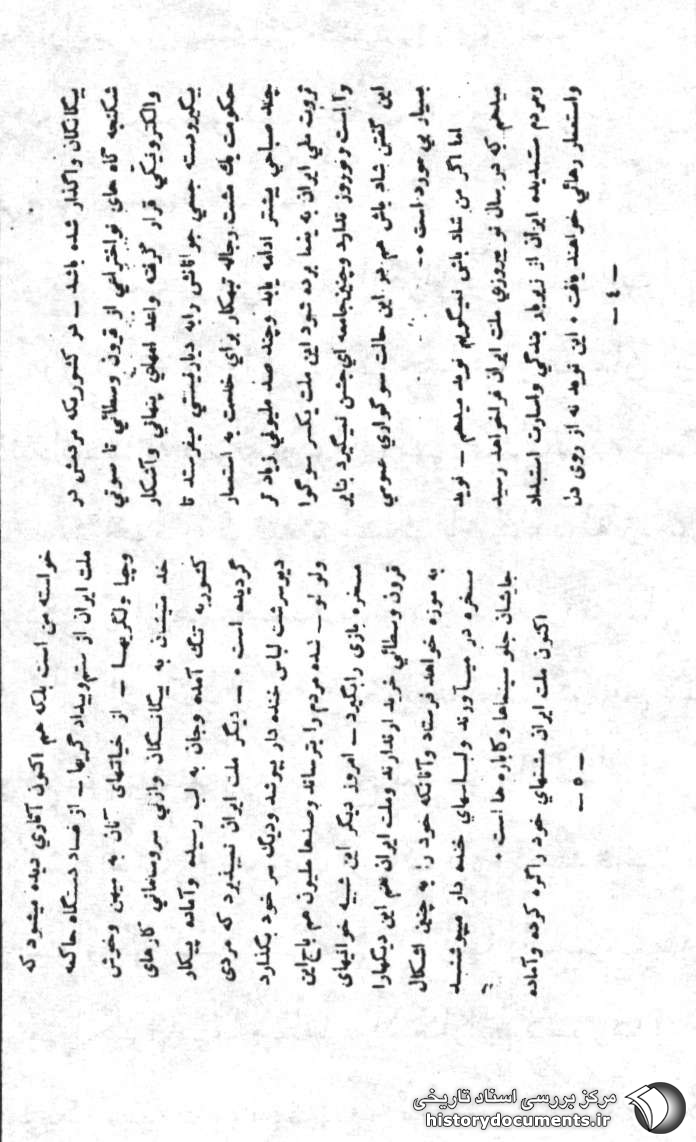 بیگانگان واگذار شده باشد ـ در کشوریکه مردمش در
شکنجه گاه های قرون وسطائی تا صوتی
والکترونیکی قرار گرفته واعدامهای پنهانی وآشکار
جوانانش رابه دیار نیستی میفرستد تا
حکومت یك مشت رجاله تبهکار برای خدمت به استعمار
چند صباحی بیشتر ادامه یابد وچند صد ملیونی زیادتر
ثروت ملی ایران به یغما برده شود این ملت یکسر سوگوا
نوروز ندارد وچنین جامعه ای جشن نمیگیرد بنابر
این گفتن شاد باش هم در این حالت سوگواری عمومی
بسیار بی مورد است ۰۰
اما اگر من شاد باش نمیگویم نوید میدهم ـ نوید
میدهم که در سال نو پیروزی ملت ایران فراخواهد رسید
ومردم ستمدیده ایران از زیربار بندگی واسارت استبداد
واستعمار رهائی خواهند یافت ۰ این نوید نه از روی دل
ـ ٤ ـ
خواسته من است بلکه هم اکنون آثاری دیده میشود که
ملت ایران از ستم وبیداد گریها ـ از فساد دستگاه حاکمه
ولگریها ـ از خیانتهای آنان به میهن وخوش
خدمتیشان به بیگانگان وازبی سروسامانی کارهای
کشور به تنگ آمده وجان به لب رسیده وآماده پیکار
گردیده است ۰ ـ دیگر ملت ایران نمیپذیرد که مردی
دیوسرشت لباس خنده دار بپوشد ودیگ سر خود بگذارد
ولو لو ـ شده مردم را بترساند وصدها ملیون هم باج این
مسخره بازی رابگیرد ـ امروز دیگر این شبیه خوانیهای
قرون وسطائی خریدار ندارند وملت ایران هم این دیگهارا
به موزه خواهد فرستاد وآنانکه خود را به چنین اشکال
مسخره در میآورند ولباسهای خنده دار میپوشند
جایشان جلو سینماها وکاباره ها است ۰
اکنون ملت ایران مشتهای خود راگره کرده وآماده
ـ ٥ ـ
مرکز بررسی اسناد تاریخی
historydocuments.ir